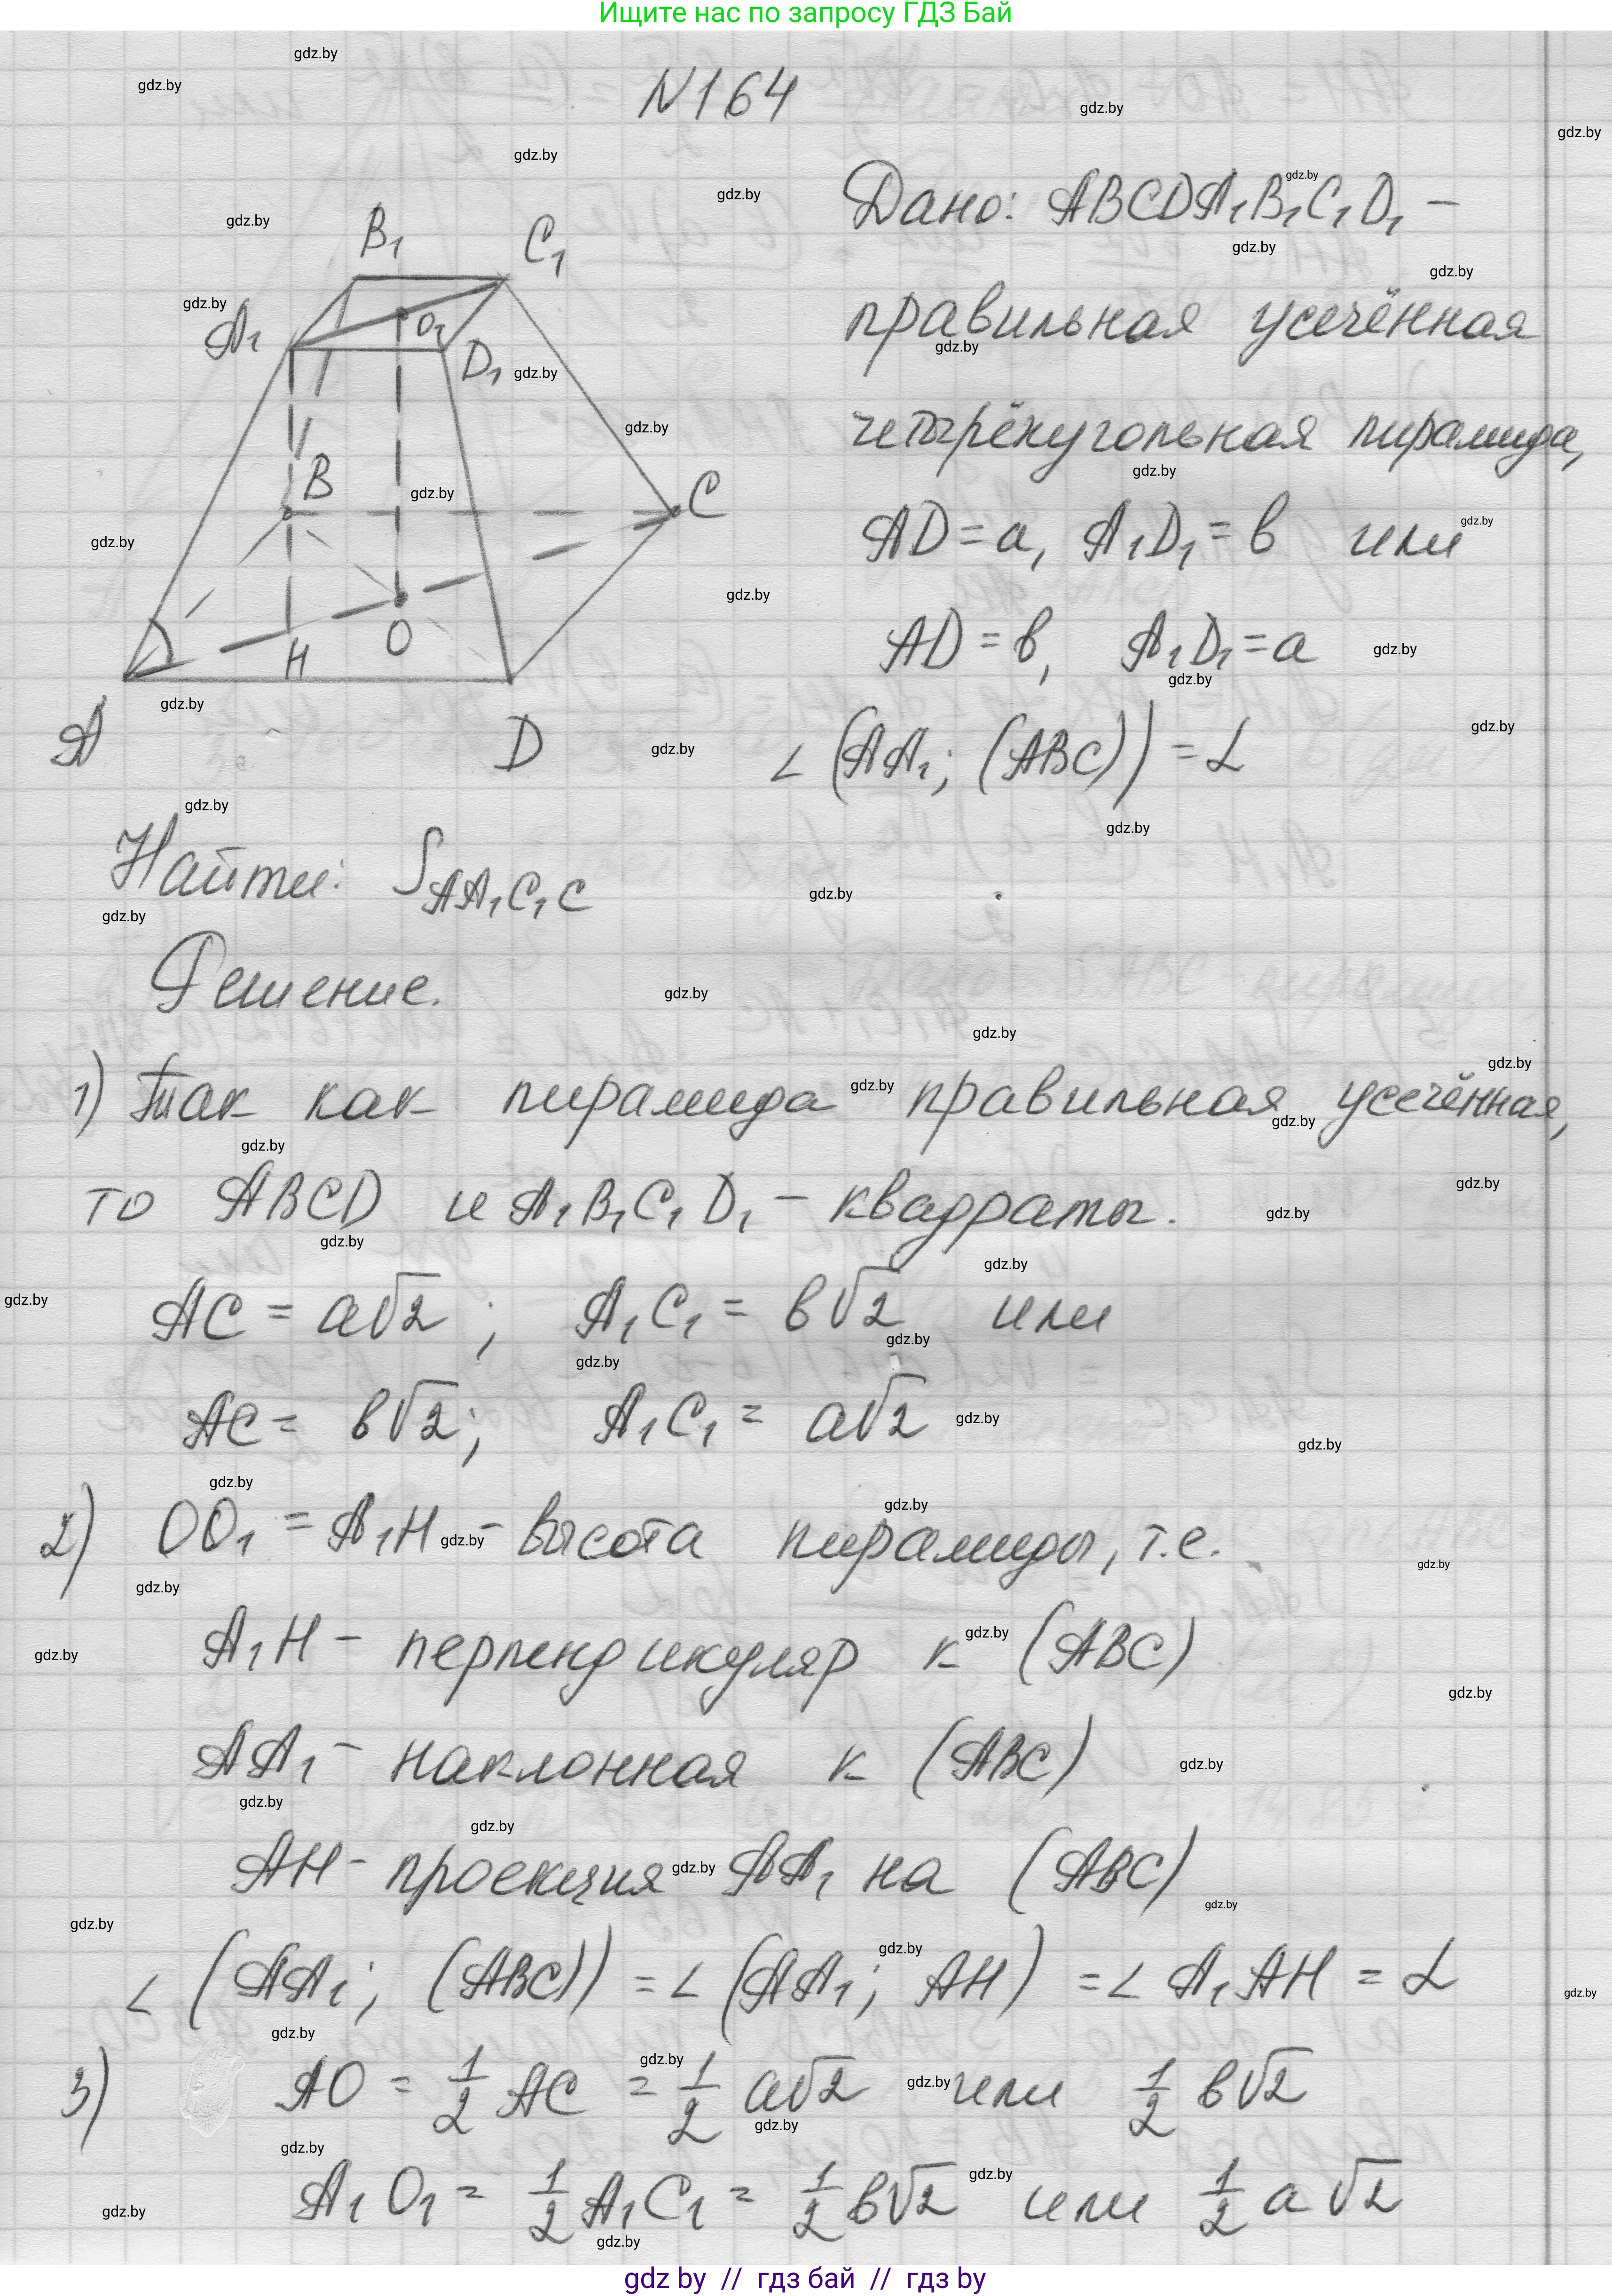 Ищите нас по запросу ГДЗ Бай
N164
Дано: ABCDA₁B₁C₁D₁ –
правильная усечённая
четырёхугольная пирамида,
AD = a, A₁D₁ = в или
AD = в, A₁D₁ = a
∠ (AA₁; (ABC)) = α
B₁ C₁
A₁ O₁ D₁
B C
H O
A D
Найти: S AA₁C₁C
Решение.
1) Так как пирамида правильная усечённая,
то ABCD и A₁B₁C₁D₁ – квадраты.
AC = a√2 ; A₁C₁ = в√2 или
AC = в√2; A₁C₁ = a√2
2) OO₁ = A₁H – высота пирамиды, т.е.
A₁H – перпендикуляр к (ABC)
AA₁ – наклонная к (ABC)
AH – проекция AA₁ на (ABC)
∠ (AA₁; (ABC)) = ∠ (AA₁; AH) = ∠ A₁AH = α
3) AO = 1/2 AC = 1/2 a√2 или 1/2 в√2
A₁O₁ = 1/2 A₁C₁ = 1/2 в√2 или 1/2 a√2
gdz by // гдз бай // гдз by